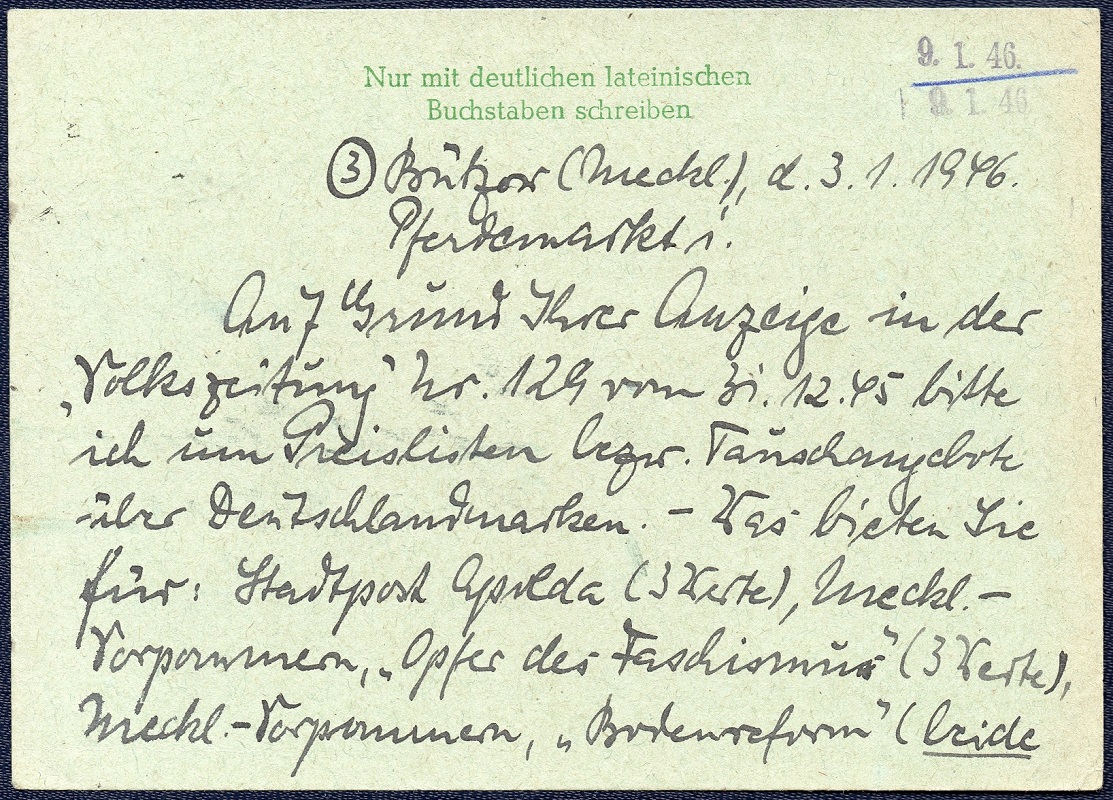 9. 1. 46.
9. 1. 46
Nur mit deutlichen lateinischen
Buchstaben schreiben
③ Bützow (Meckl.), d. 3. 1. 1946.
Pferdemarkt 1.
Auf Grund Ihrer Anzeige in der
„Volkszeitung" Nr. 129 vom 31. 12. 45 bitte
ich um Preislisten bezw. Tauschangebote
über Deutschlandmarken. – Was bieten Sie
für: Stadtpost Apolda (3 Werte), Meckl.-
Vorpommern, „Opfer des Faschismus" (3 Werte),
Meckl.-Vorpommern, „Bodenreform" (beide